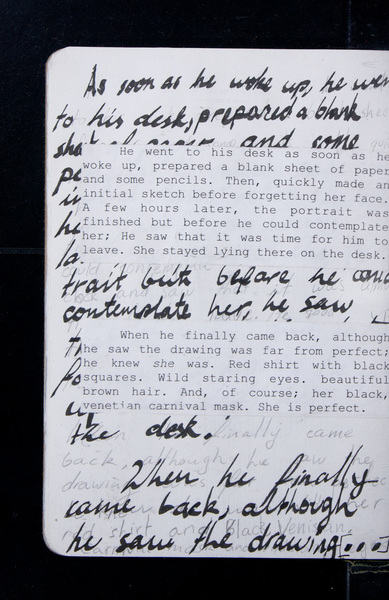 As soon as he woke up, he wen
to his desk, prepared a blank
and some
He went to his desk as soon as he
woke up, prepared a blank sheet of paper
and some pencils. Then, quickly made an
initial sketch before forgetting her face.
A few hours later, the portrait was
finished but before he could contemplate
her; He saw that it was time for him to
leave. She stayed lying there on the desk.
trait but before he
contemplate her, he saw,
When he finally came back, although
he saw the drawing was far from perfect;
he knew she was. Red shirt with black
squares. Wild staring eyes. beautiful
brown hair. And, of course; her black,
venetian carnival mask. She is perfect.
the desk.
finally came
back, although he saw
drawing
When he finally
came back, although
red shirt and black Venisian
he saw the drawing[...]